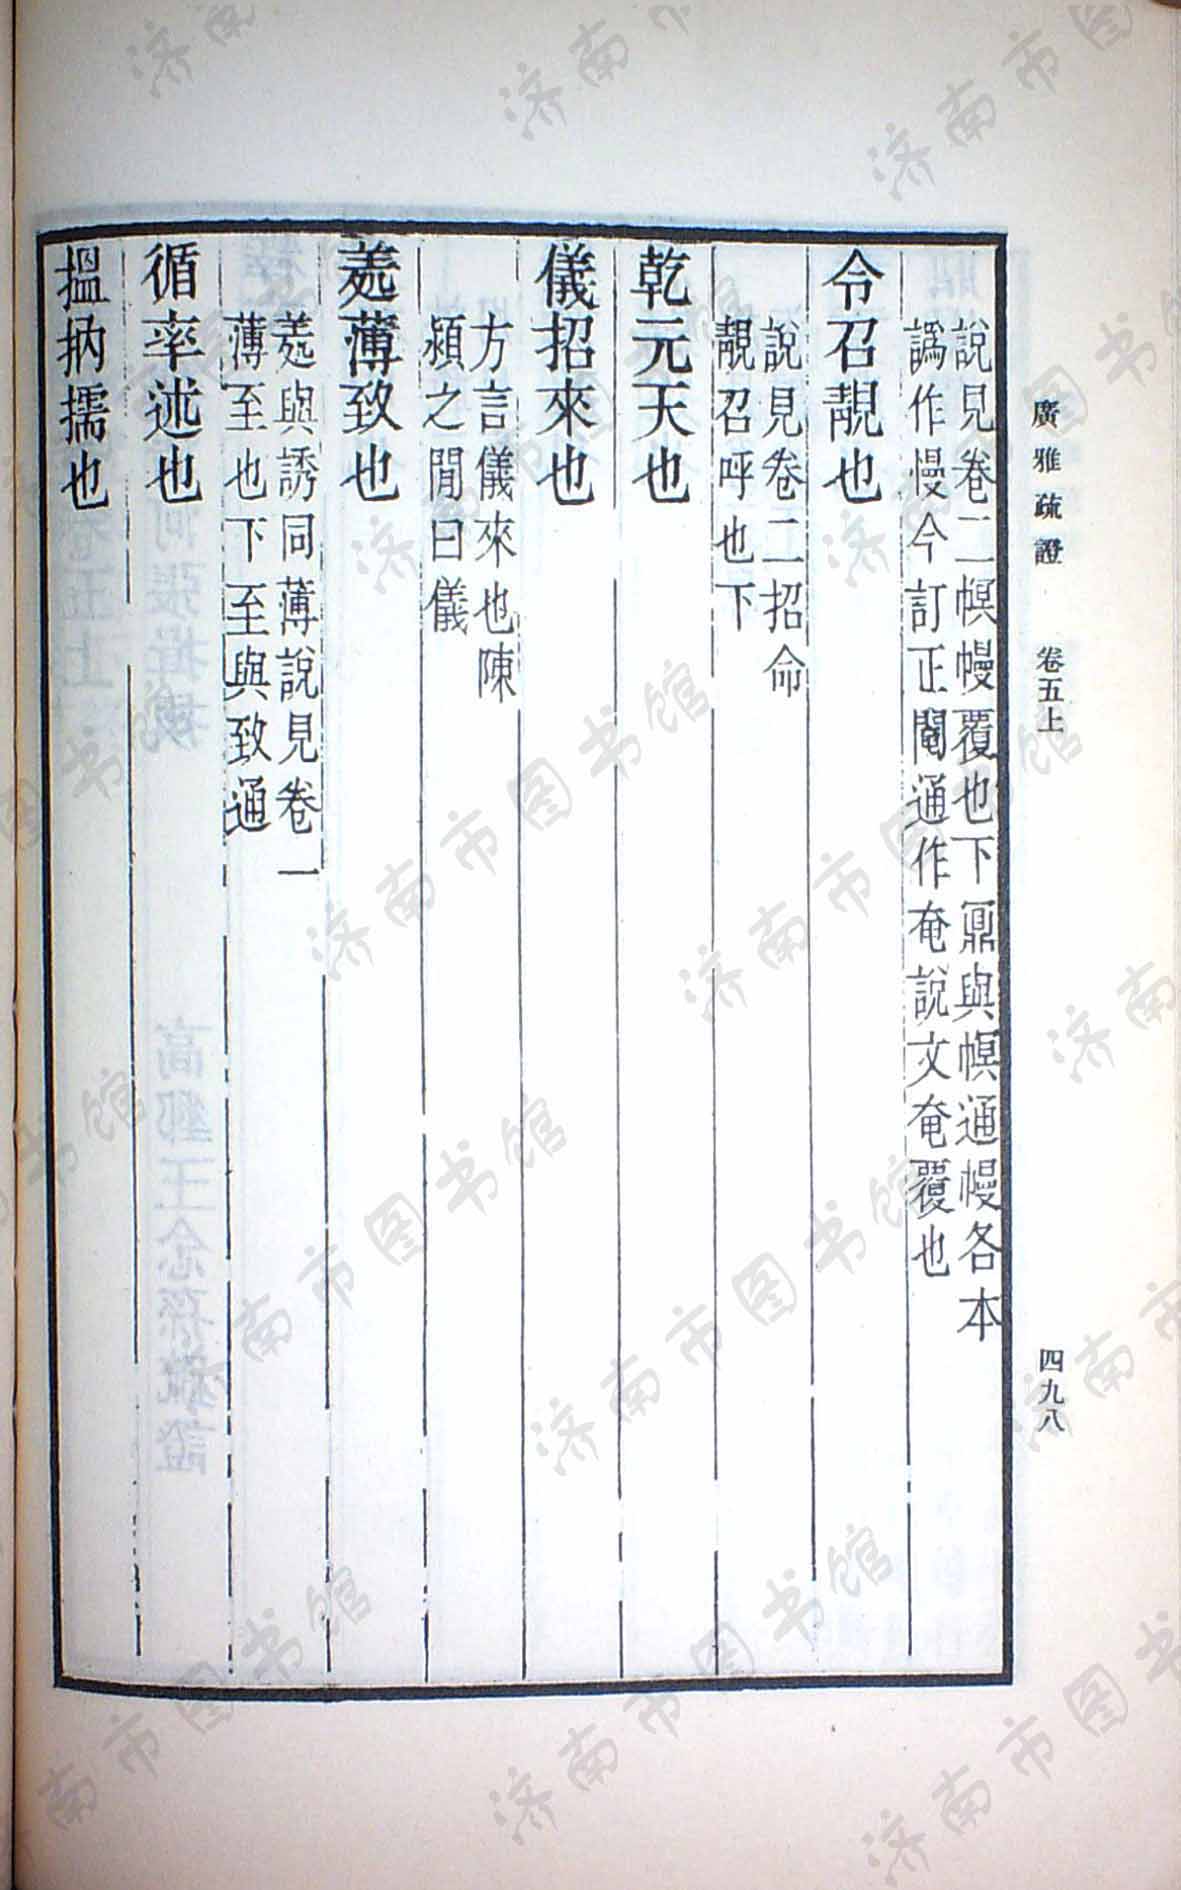 廣雅疏證 卷五上 四九八
說見卷二幎幔覆也下鼏與幎通幔各本
譌作慢今訂正閹通作奄說文奄覆也
令召靚也
說見卷二招命
靚召呼也下
乾元天也
儀招來也
方言儀來也陳
潁之閒曰儀
羑薄致也
羑與誘同薄說見卷一
薄至也下至與致通
循率述也
搵抐擩也
济南市图书馆